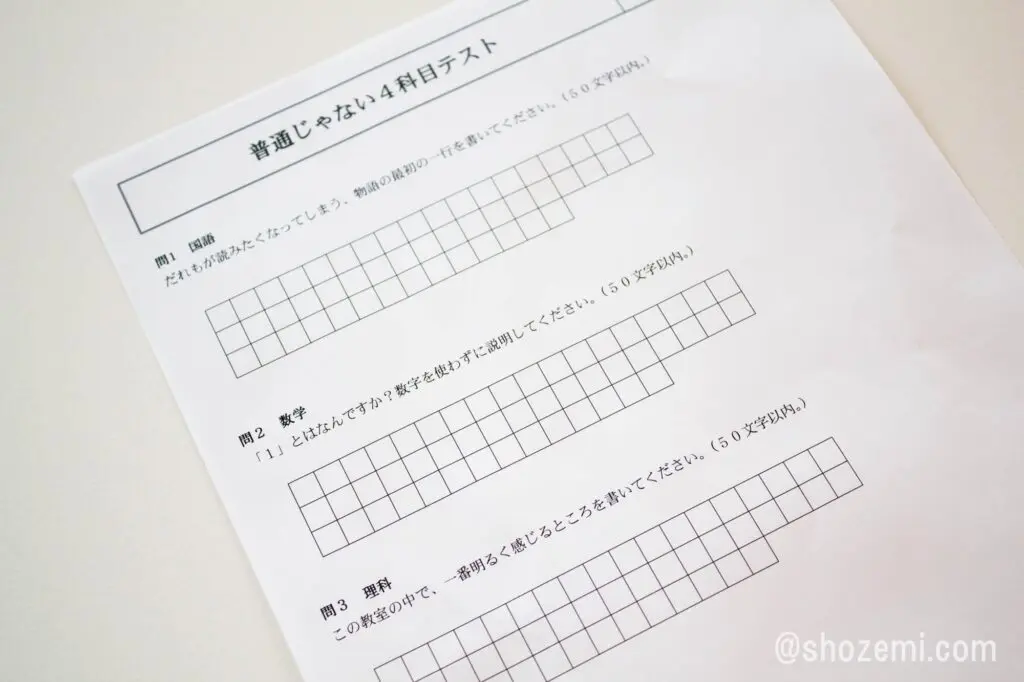 普通じゃない4科目テスト
問1 国語
だれもが読みたくなってしまう、物語の最初の一行を書いてください。(50文字以内。)
問2 数学
「1」とはなんですか?数字を使わずに説明してください。(50文字以内。)
問3 理科
この教室の中で、一番明るく感じるところを書いてください。(50文字以内。)
@shozemi.com